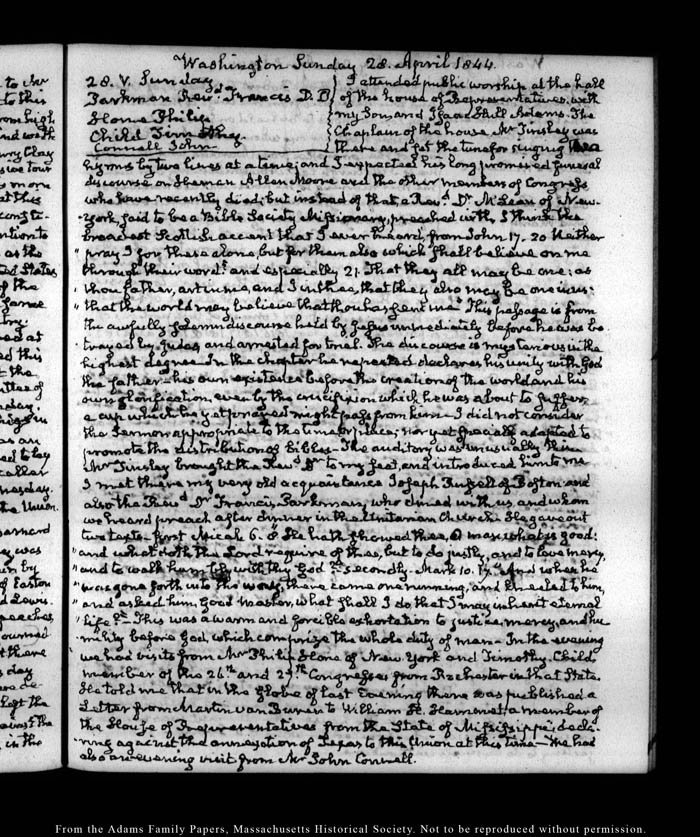 Washington Sunday 28. April 1844.
28. V. Sunday.
Parkman Rev.d Francis D.D
Hone Philip
Child Timothy
Connell John
I attended public worship at the hall
of the house of Representatives, with
my Son, and Isaac Hull Adams. The
Chaplain of the house Mr Tinsley was
there and set the tune for singing the
hymns by two lines at a time; and I expected his long promised funeral
discourse on Heman Allen Moore and the other members of Congress
who have recently died; but instead of that, a Rev.d Dr McLean of New-
York, said to be a Bible Society Missionary, preached with, I think the
broadest Scotish accent that I ever heard, from John 17. 20 Neither
pray I for these alone, but for them also which shall believe on me
through their word: and especially 21. That they all may be one; as
thou father, art in me, and I in thee, that they also may be one in us:
that the world may believe that thou hast sent me. This passage is from
the awfully solemn discourse held by Jesus immediately before he was be
trayed by Judas and arrested for trial. The discourse is mysterious in the
highest degree. In the chapter he repeated declares his unity with God
the father—his own existence before the creation of the world and his
own glorification, even by the crucifixion which he was about to suffer,
a cup which he yet prayed might pass from him—I did not consider
the Sermon appropriate to the time or place; nor yet specially adapted to
promote the distribution of Bibles—The auditory was unusually thin
Mr Tinsley brought the Rev.d Dr to my seat, and introduced him to me
I met there my very old acquaintance Joseph Russell of Boston and
also the Rev.d Dr Francis Parkman, who dined with us, and whom
we heard preach after dinner in the Unitarian Church. He gave out
two texts—first Micah 6. 8 He hath shewed thee, O man what is good:
and what doth the Lord require of thee, but to do justly, and to love mercy,
and to walk humbly with thy God secondly. Mark 10. 17 And when he
was gone forth into the way, there came one running, and kneeled to him,
and asked him, Good Master, what shall I do that I may inherit eternal
life. This was a warm and forcible exhortation to justice, mercy, and hu
mility before God, which comprize the whole duty of man—In the evening
we had visits from Mr Philip Hone of New York and Timothy Childs
member of the 26.th and 27.th Congresses from Rochester in that State.
He told me that in the Globe of last Evening there was published a
Letter from Martin van Buren to William H. Hammet, a member of
the House of Representatives from the State of Mississippi, decla-
ring against the annexation of Texas to this Union at this time—We had
also an evening visit from Mr John Connell.
From the Adams Family Papers, Massachusetts Historical Society. Not to be reproduced without permission.